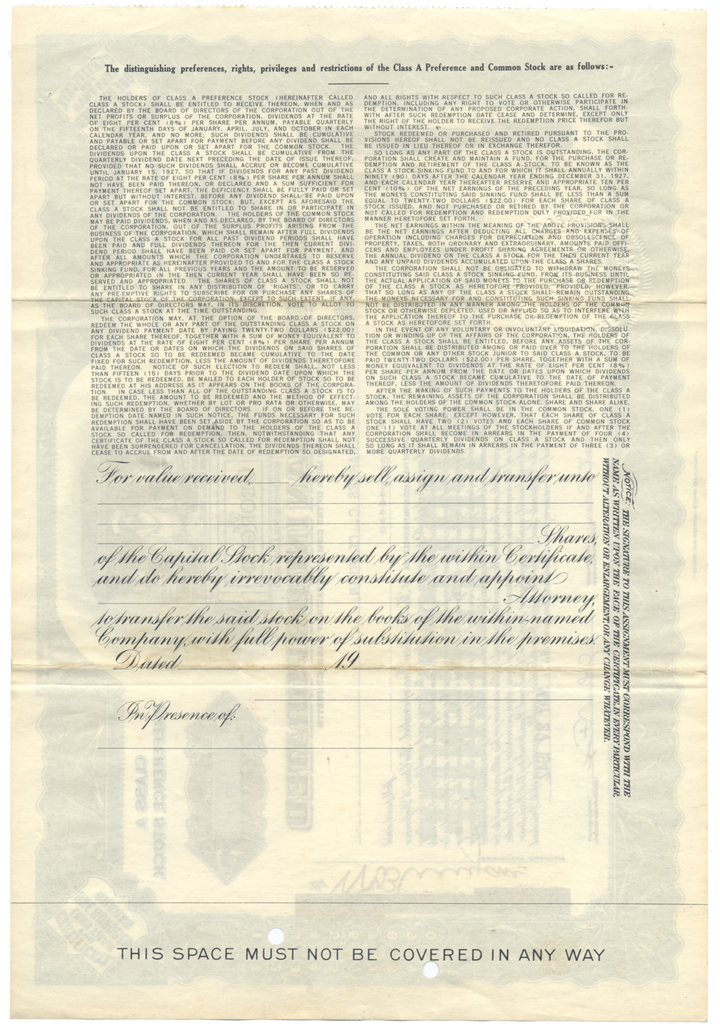 The distinguishing preferences, rights, privileges and restrictions of the Class A Preference and Common Stock are as follows:-
THE HOLDERS OF CLASS A PREFERENCE STOCK (HEREINAFTER CALLED
CLASS A STOCK) SHALL BE ENTITLED TO RECEIVE THEREON, WHEN AND AS
DECLARED BY THE BOARD OF DIRECTORS OF THE CORPORATION OUT OF THE
NET PROFITS OR SURPLUS OF THE CORPORATION, DIVIDENDS AT THE RATE
OF EIGHT PER CENT (8%) PER SHARE PER ANNUM, PAYABLE QUARTERLY,
ON THE FIFTEENTH DAYS OF JANUARY, APRIL, JULY, AND OCTOBER IN EACH
CALENDAR YEAR, AND NO MORE; SUCH DIVIDENDS SHALL BE CUMULATIVE
AND PAYABLE OR SET APART FOR PAYMENT BEFORE ANY DIVIDEND SHALL BE
DECLARED OR PAID UPON OR SET APART FOR THE COMMON STOCK. THE
DIVIDENDS UPON THE CLASS A STOCK SHALL BE CUMULATIVE FROM THE
QUARTERLY DIVIDEND DATE NEXT PRECEDING THE DATE OF ISSUE THEREOF,
PROVIDED THAT NO SUCH DIVIDENDS SHALL ACCRUE OR BECOME CUMULATIVE
UNTIL JANUARY 15, 1927, SO THAT IF DIVIDENDS FOR ANY PAST DIVIDEND
PERIOD AT THE RATE OF EIGHT PER CENT (8%) PER SHARE PER ANNUM SHALL
NOT HAVE BEEN PAID THEREON, OR DECLARED AND A SUM SUFFICIENT FOR
PAYMENT THEREOF SET APART, THE DEFICIENCY SHALL BE FULLY PAID OR SET
APART BUT WITHOUT INTEREST, BEFORE ANY DIVIDEND SHALL BE PAID UPON
OR SET APART FOR THE COMMON STOCK; BUT, EXCEPT AS AFORESAID THE
CLASS A STOCK SHALL NOT BE ENTITLED TO SHARE IN OR PARTICIPATE IN
ANY DIVIDENDS OF THE CORPORATION. THE HOLDERS OF THE COMMON STOCK
MAY BE PAID DIVIDENDS, WHEN AND AS DECLARED, BY THE BOARD OF DIRECTORS
OF THE CORPORATION, OUT OF THE SURPLUS PROFITS ARISING FROM THE
BUSINESS OF THE CORPORATION, WHICH SHALL REMAIN AFTER FULL DIVIDENDS
UPON THE CLASS A STOCK FOR ALL PAST DIVIDEND PERIODS SHALL HAVE
BEEN PAID AND FULL DIVIDENDS THEREON FOR THE THEN CURRENT DIVI-
DEND PERIOD SHALL HAVE BEEN PAID OR SET APART FOR PAYMENT, AND
AFTER ALL AMOUNTS WHICH THE CORPORATION UNDERTAKES TO RESERVE
AND APPROPRIATE AS HEREINAFTER PROVIDED TO AND FOR THE CLASS A STOCK
SINKING FUND, FOR ALL PREVIOUS YEARS AND THE AMOUNT TO BE RESERVED
OR APPROPRIATED IN THE THEN CURRENT YEAR SHALL HAVE BEEN SO RE-
SERVED AND APPROPRIATED. THE SHARES OF CLASS A STOCK SHALL NOT
BE ENTITLED TO SHARE IN ANY DISTRIBUTION OF "RIGHTS", OR TO CARRY
ANY PRE-EMPTIVE RIGHTS TO SUBSCRIBE FOR OR PURCHASE ANY SHARES OF
THE CAPITAL STOCK OF THE CORPORATION, EXCEPT TO SUCH EXTENT, IF ANY,
AS THE BOARD OF DIRECTORS MAY, IN ITS DISCRETION, VOTE TO ALLOT TO
SUCH CLASS A STOCK AT THE TIME OUTSTANDING.
THE CORPORATION MAY, AT THE OPTION OF THE BOARD OF DIRECTORS,
REDEEM THE WHOLE OR ANY PART OF THE OUTSTANDING CLASS A STOCK ON
ANY DIVIDEND PAYMENT DATE, BY PAYING TWENTY-TWO DOLLARS ($22.00)
FOR EACH SHARE THEREOF TOGETHER WITH A SUM OF MONEY EQUIVALENT TO
DIVIDENDS AT THE RATE OF EIGHT PER CENT (8%) PER SHARE PER ANNUM
FROM THE DATE OR DATES ON WHICH THE DIVIDENDS ON SAID SHARES OF
CLASS A STOCK SO TO BE REDEEMED BECAME CUMULATIVE TO THE DATE
FIXED FOR SUCH REDEMPTION, LESS THE AMOUNT OF DIVIDENDS THERETOFORE
PAID THEREON. NOTICE OF SUCH ELECTION TO REDEEM SHALL, NOT LESS
THAN FIFTEEN (15) DAYS PRIOR TO THE DIVIDEND DATE UPON WHICH THE
STOCK IS TO BE REDEEMED, BE MAILED TO EACH HOLDER OF STOCK SO TO BE
REDEEMED AT HIS ADDRESS AS IT APPEARS ON THE BOOKS OF THE CORPORA-
TION. IN CASE LESS THAN ALL OF THE OUTSTANDING CLASS A STOCK IS TO
BE REDEEMED, THE AMOUNT TO BE REDEEMED AND THE METHOD OF EFFECT-
ING SUCH REDEMPTION, WHETHER BY LOT OR PRO RATA OR OTHERWISE, MAY
BE DETERMINED BY THE BOARD OF DIRECTORS. IF ON OR BEFORE THE RE-
DEMPTION DATE NAMED IN SUCH NOTICE, THE FUNDS NECESSARY FOR SUCH
REDEMPTION SHALL HAVE BEEN SET ASIDE BY THE CORPORATION SO AS TO BE
AVAILABLE FOR PAYMENT ON DEMAND TO THE HOLDERS OF THE CLASS A
STOCK SO CALLED FOR REDEMPTION, THEN, NOTWITHSTANDING THAT ANY
CERTIFICATE OF THE CLASS A STOCK SO CALLED FOR REDEMPTION SHALL NOT
HAVE BEEN SURRENDERED FOR CANCELLATION, THE DIVIDENDS THEREON SHALL
CEASE TO ACCRUE FROM AND AFTER THE DATE OF REDEMPTION SO DESIGNATED,
AND ALL RIGHTS WITH RESPECT TO SUCH CLASS A STOCK SO CALLED FOR RE-
DEMPTION, INCLUDING ANY RIGHT TO VOTE OR OTHERWISE PARTICIPATE IN
THE DETERMINATION OF ANY PROPOSED CORPORATE ACTION, SHALL FORTH-
WITH AFTER SUCH REDEMPTION DATE CEASE AND DETERMINE, EXCEPT ONLY
THE RIGHT OF THE HOLDER TO RECEIVE THE REDEMPTION PRICE THEREFOR BUT
WITHOUT INTEREST.
STOCK REDEEMED OR PURCHASED AND RETIRED PURSUANT TO THE PRO-
VISIONS HEREOF SHALL NOT BE REISSUED AND NO CLASS A STOCK SHALL
BE ISSUED IN LIEU THEREOF OR IN EXCHANGE THEREFOR.
SO LONG AS ANY PART OF THE CLASS A STOCK IS OUTSTANDING, THE COR-
PORATION SHALL CREATE AND MAINTAIN A FUND, FOR THE PURCHASE OR RE-
DEMPTION AND RETIREMENT OF THE CLASS A STOCK, TO BE KNOWN AS THE
CLASS A STOCK SINKING FUND AND TO WHICH IT SHALL ANNUALLY WITHIN
NINETY (90) DAYS AFTER THE CALENDAR YEAR ENDING DECEMBER 31, 1927,
AND EACH CALENDAR YEAR THEREAFTER RESERVE AND APPROPRIATE TEN PER
CENT (10%) OF THE NET EARNINGS OF THE PRECEDING YEAR, SO LONG AS
THE MONEYS CONSTITUTING SAID SINKING FUND SHALL BE LESS THAN A SUM
EQUAL TO TWENTY-TWO DOLLARS ($22.00) FOR EACH SHARE OF CLASS A
STOCK ISSUED, AND NOT PURCHASED OR RETIRED BY THE CORPORATION OR
NOT CALLED FOR REDEMPTION AND REDEMPTION DULY PROVIDED FOR IN THE
MANNER HERETOFORE SET FORTH.
THE NET EARNINGS WITHIN THE MEANING OF THE ABOVE PROVISIONS SHALL
BE THE NET EARNINGS AFTER DEDUCTING ALL CHARGES AND EXPENSES OF
OPERATION INCLUDING CHARGES FOR DEPRECIATION AND OBSOLESCENCE, OF
PROPERTY, TAXES, BOTH ORDINARY AND EXTRAORDINARY, AMOUNTS PAID OFFI-
CERS AND EMPLOYEES UNDER PROFIT SHARING AGREEMENTS OR OTHERWISE,
THE ANNUAL DIVIDEND ON THE CLASS A STOCK FOR THE THEN CURRENT YEAR
AND ANY UNPAID DIVIDENDS ACCUMULATED UPON THE CLASS A SHARES.
THE CORPORATION SHALL NOT BE OBLIGATED TO WITHDRAW THE MONEYS
CONSTITUTING SAID CLASS A STOCK SINKING FUND, FROM ITS BUSINESS UNTIL
THE ACTUAL APPLICATION OF SAID MONEYS TO THE PURCHASE OR REDEMPTION
OF THE CLASS A STOCK AS HERETOFORE PROVIDED, PROVIDED, HOWEVER,
THAT SO LONG AS ANY OF THE CLASS A STOCK SHALL REMAIN OUTSTANDING
THE MONEYS NECESSARY FOR AND CONSTITUTING SUCH SINKING FUND SHALL
NOT BE DISTRIBUTED IN ANY MANNER AMONG THE HOLDERS OF THE COMMON
STOCK OR OTHERWISE DEPLETED, USED OR APPLIED SO AS TO INTERFERE WITH
THE APPLICATION THEREOF TO THE PURCHASE OR REDEMPTION OF THE CLASS
A STOCK AS HERETOFORE SET FORTH.
IN THE EVENT OF ANY VOLUNTARY OR INVOLUNTARY LIQUIDATION, DISSOLU-
TION OR WINDING UP OF THE AFFAIRS OF THE CORPORATION, THE HOLDERS OF
THE CLASS A STOCK SHALL BE ENTITLED, BEFORE ANY ASSETS OF THE COR-
PORATION SHALL BE DISTRIBUTED AMONG OR PAID OVER TO THE HOLDERS OF
THE COMMON OR ANY OTHER STOCK JUNIOR TO SAID CLASS A STOCK, TO BE
PAID TWENTY-TWO DOLLARS ($22.00) PER SHARE, TOGETHER WITH A SUM OF
MONEY EQUIVALENT TO DIVIDENDS AT THE RATE OF EIGHT PER CENT (8%)
PER SHARE PER ANNUM FROM THE DATE OR DATES UPON WHICH DIVIDENDS
ON SUCH CLASS A STOCK BECAME CUMULATIVE TO THE DATE OF PAYMENT
THEREOF, LESS THE AMOUNT OF DIVIDENDS THERETOFORE PAID THEREON.
AFTER THE MAKING OF SUCH PAYMENTS TO THE HOLDERS OF THE CLASS A
STOCK, THE REMAINING ASSETS OF THE CORPORATION SHALL BE DISTRIBUTED
AMONG THE HOLDERS OF THE COMMON STOCK ALONE, SHARE AND SHARE ALIKE.
THE SOLE VOTING POWER SHALL BE IN THE COMMON STOCK, ONE (1)
VOTE FOR EACH SHARE; EXCEPT HOWEVER, THAT EACH SHARE OF CLASS A
STOCK SHALL HAVE TWO (2) VOTES AND EACH SHARE OF COMMON STOCK
ONE (1) VOTE AT ALL MEETINGS OF THE STOCKHOLDERS IF AND AFTER THE
CORPORATION SHALL BECOME IN ARREARS IN THE PAYMENT OF FOUR (4)
SUCCESSIVE QUARTERLY DIVIDENDS ON CLASS A STOCK AND THEN ONLY
SO LONG AS IT SHALL REMAIN IN ARREARS IN THE PAYMENT OF THREE (3) OR
MORE QUARTERLY DIVIDENDS.
For value received, hereby sell, assign and transfer unto
Shares,
of the Capital Stock represented by the within Certificate,
and do hereby irrevocably constitute and appoint
Attorney,
to transfer the said stock on the books of the within-named
Company, with full power of substitution in the premises.
Dated 19
In Presence of:
NOTICE: THE SIGNATURE TO THIS ASSIGNMENT MUST CORRESPOND WITH THE
NAME AS WRITTEN UPON THE FACE OF THE CERTIFICATE, IN EVERY PARTICULAR,
WITHOUT ALTERATION OR ENLARGEMENT, OR ANY CHANGE WHATEVER.
THIS SPACE MUST NOT BE COVERED IN ANY WAY